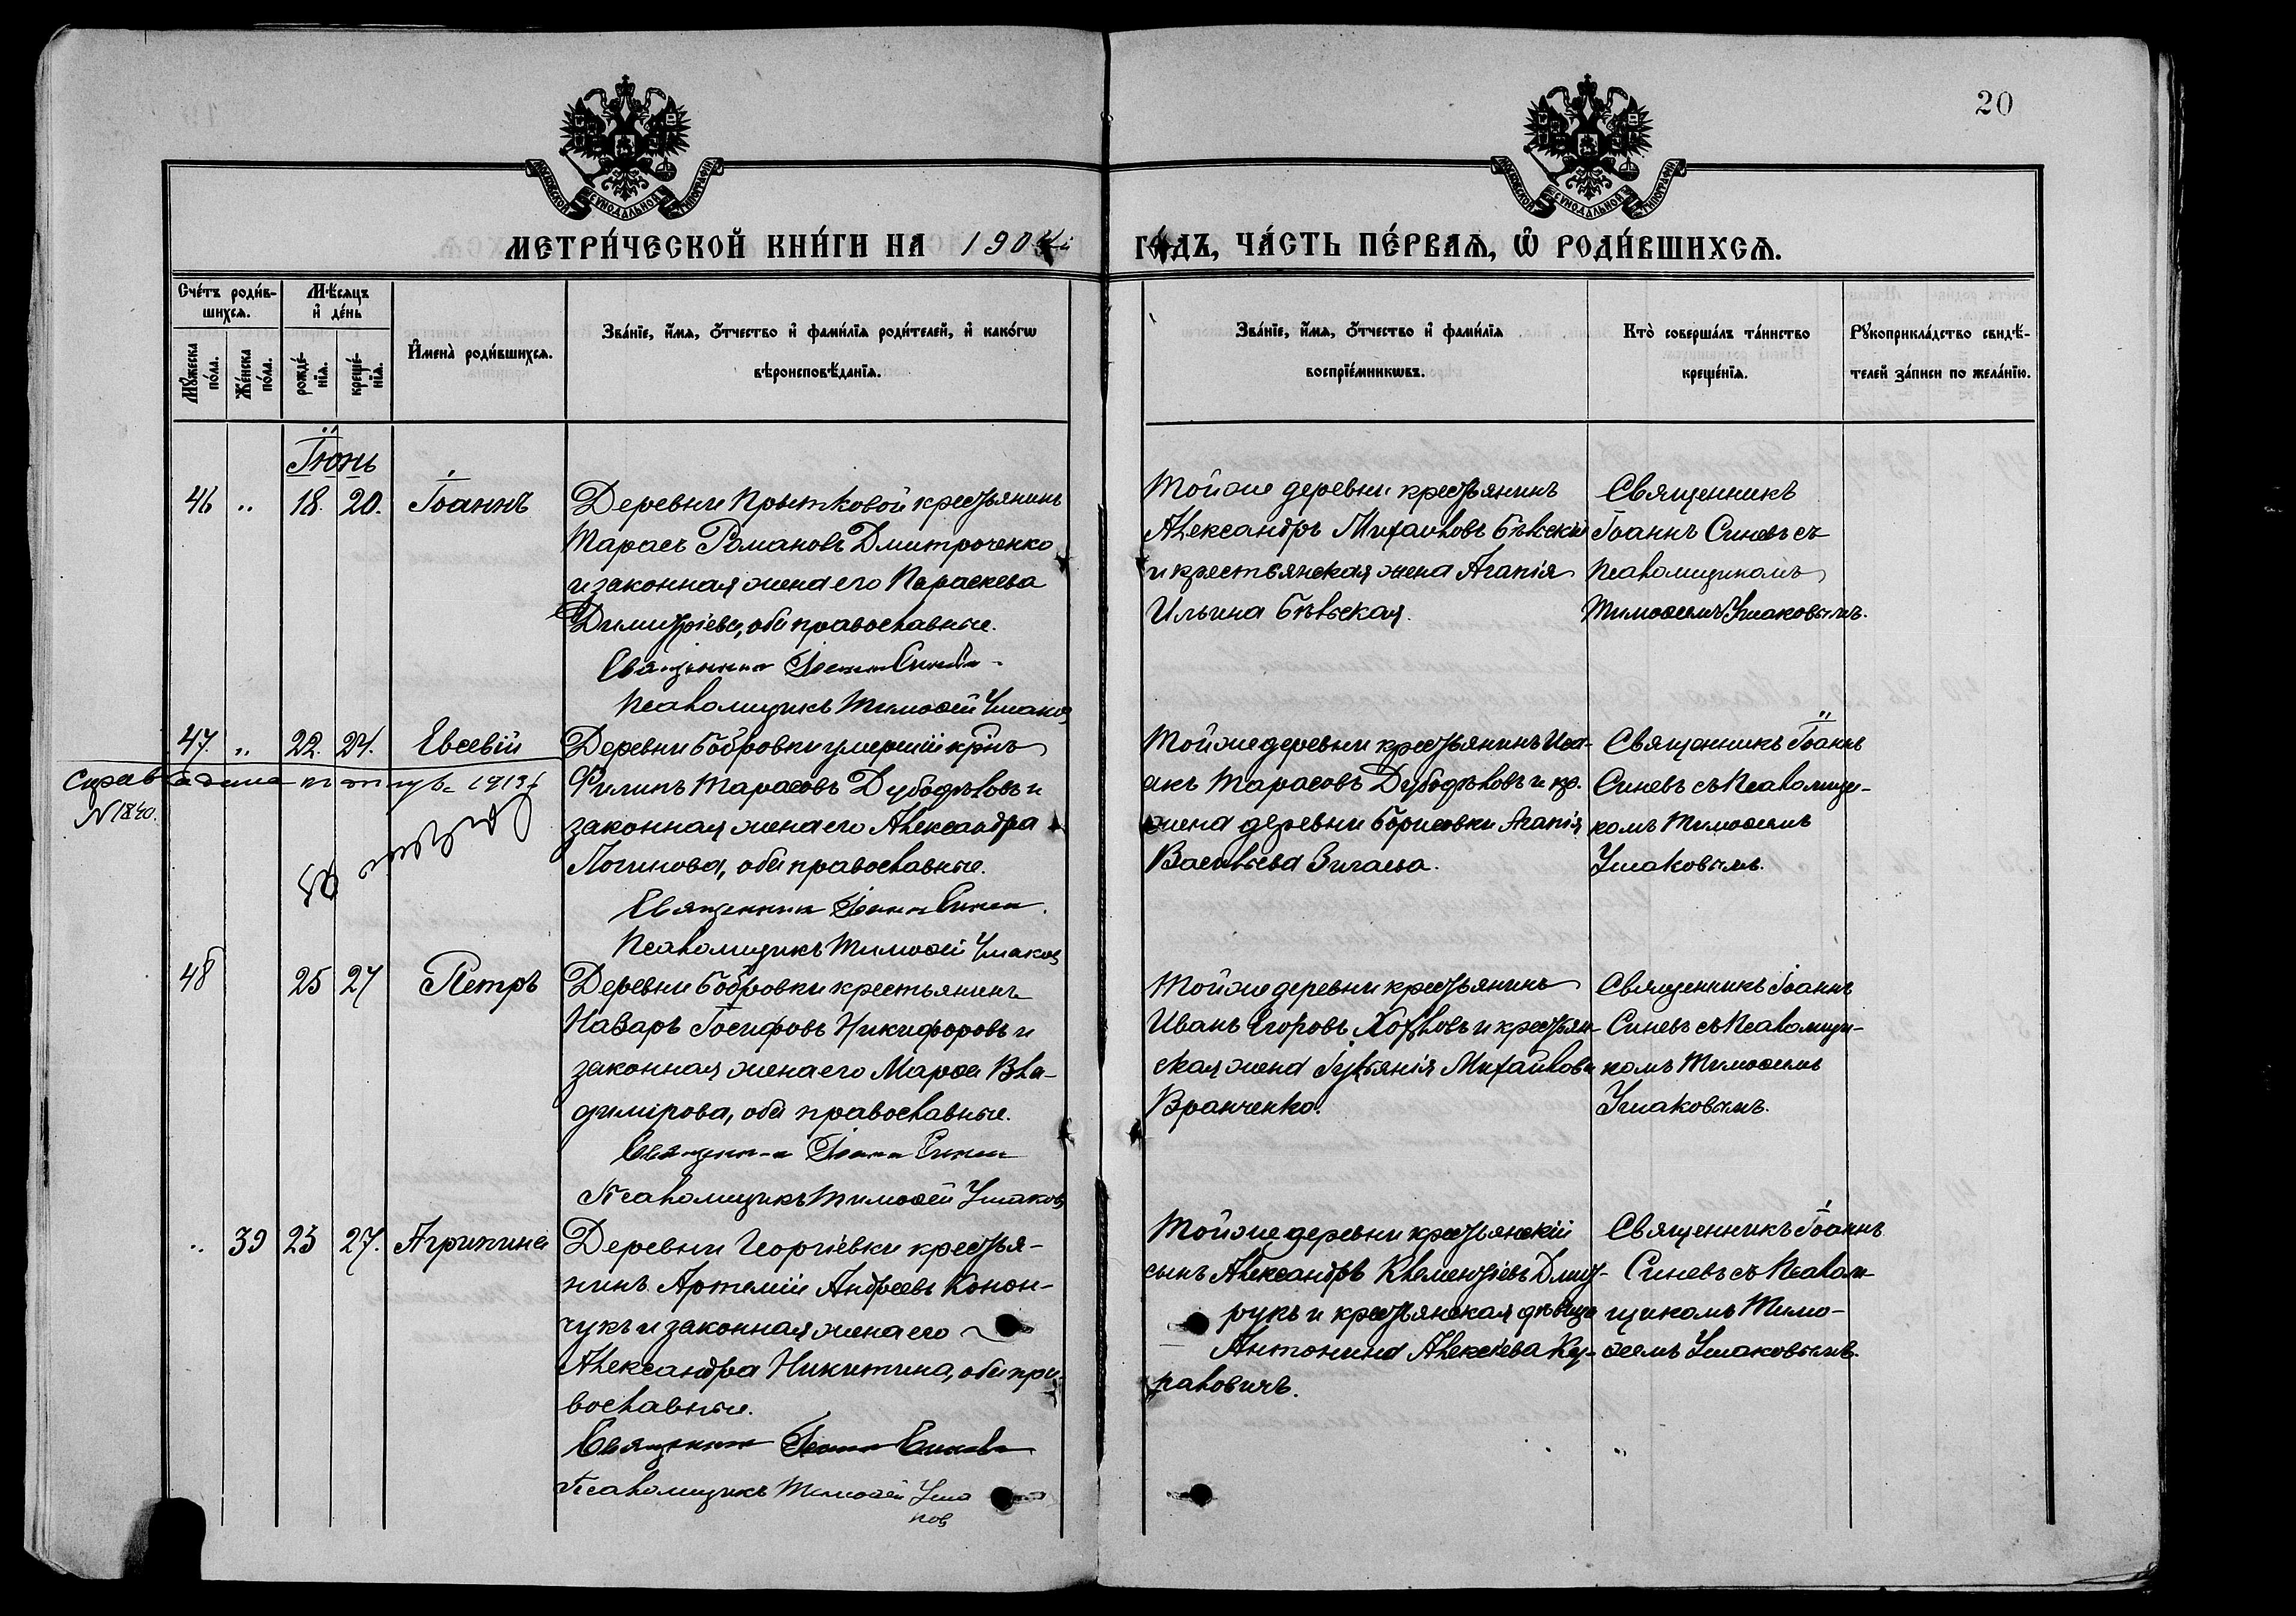 20
МОСКОВСКОЙ СѴНОДАЛЬНОЙ ТИПОГРАФІИ
МОСКОВСКОЙ СѴНОДАЛЬНОЙ ТИПОГРАФІИ
МЕТРИ́ЧЕСКОЙ КНИ́ГИ НА 1904й ГО́ДЪ, ЧА́СТЬ ПЕ́РВАѦ, Ѡ҆ РОДИ́ВШИХСѦ.
Сче́тъ роди́вшихсѧ.
Мѣ́сѧцъ и҆ де́нь
Мꙋ́жеска по́ла.
Же́нска по́ла.
рожде́нїѧ.
креще́нїѧ.
И҆мена̀ роди́вшихсѧ.
Зва́нїе, и҆́мѧ, ѻ҆́тчество и҆ фами́лїѧ роди́телей, и҆ како́гѡ
вѣроисповѣ́данїѧ.
Зва́нїе, и҆́мѧ, ѻ҆́тчество и҆ фами́лїѧ
воспрїе́мникѡвъ.
Кто̀ соверша́лъ та́инство
креще́нїѧ.
Рꙋкоприкла́дство свидѣ́-
телей за́писи по жела́нїю.
Іюнь
46 „ 18. 20. Іоаннъ
Деревни Прытковой крестьянинъ
Тарасъ Романовъ Дмитроченко
и законная жена его Параскева
Димитріева, оба православные.
Священникъ Іоаннъ Синевъ
Псаломщикъ Тимоѳей Ушаковъ
Той же деревни крестьянинъ
Александръ Михайловъ Бѣльскій
и крестьянская жена Агапія
Ильина Бѣльская.
Священникъ
Іоаннъ Синевъ съ
Псаломщикомъ
Тимоѳеемъ Ушаковымъ.
47. „ 22. 24. Евсевій
Справка дана 1913 г.
N 1840.
Деревни Бобровки умершій кр̄нъ
Филипъ Тарасовъ Дубодѣловъ и
законная жена его Александра
Логинова, оба православные.
Священникъ Іоаннъ Синевъ
Псаломщикъ Тимоѳей Ушаковъ
Той же деревни крестьянинъ Иса-
акъ Тарасовъ Дубодѣловъ и кр.
жена деревни Борисовки Агапія
Васильева Зигаева.
Священникъ Іоаннъ
Синевъ съ Псаломщи-
комъ Тимоѳеемъ
Ушаковымъ.
48 25 27 Петръ
Деревни Бобровки крестьянинъ
Назаръ Іосифовъ Никифоровъ и
законная жена его Марѳа Вла-
димірова, оба православные.
Священникъ Іоаннъ Синевъ
Псаломщикъ Тимоѳей Ушаковъ
Той же деревни крестьянинъ
Иванъ Егоровъ Хохловъ и крестьян-
ская жена Іуліанія Михайлова
Вранченко.
Священникъ Іоаннъ
Синевъ съ Псаломщи-
комъ Тимоѳеемъ
Ушаковымъ.
„ 39 23 27. Агрипина
Деревни Георгіевки крестья-
нинъ Артемій Андреевъ Конон-
чукъ и законная жена его
Александра Никитина, оба пра-
вославные.
Священникъ Іоаннъ Синевъ
Псаломщикъ Тимоѳей Уша
ковъ
Той же деревни крестьянскій
сынъ Александръ Клементіевъ Дмит-
рукъ и крестьянская дѣвица
Антонина Алексіева Ку-
раловичъ.
Священникъ Іоаннъ
Синевъ съ Псалом-
щикомъ Тимо-
ѳеемъ Ушаковымъ.